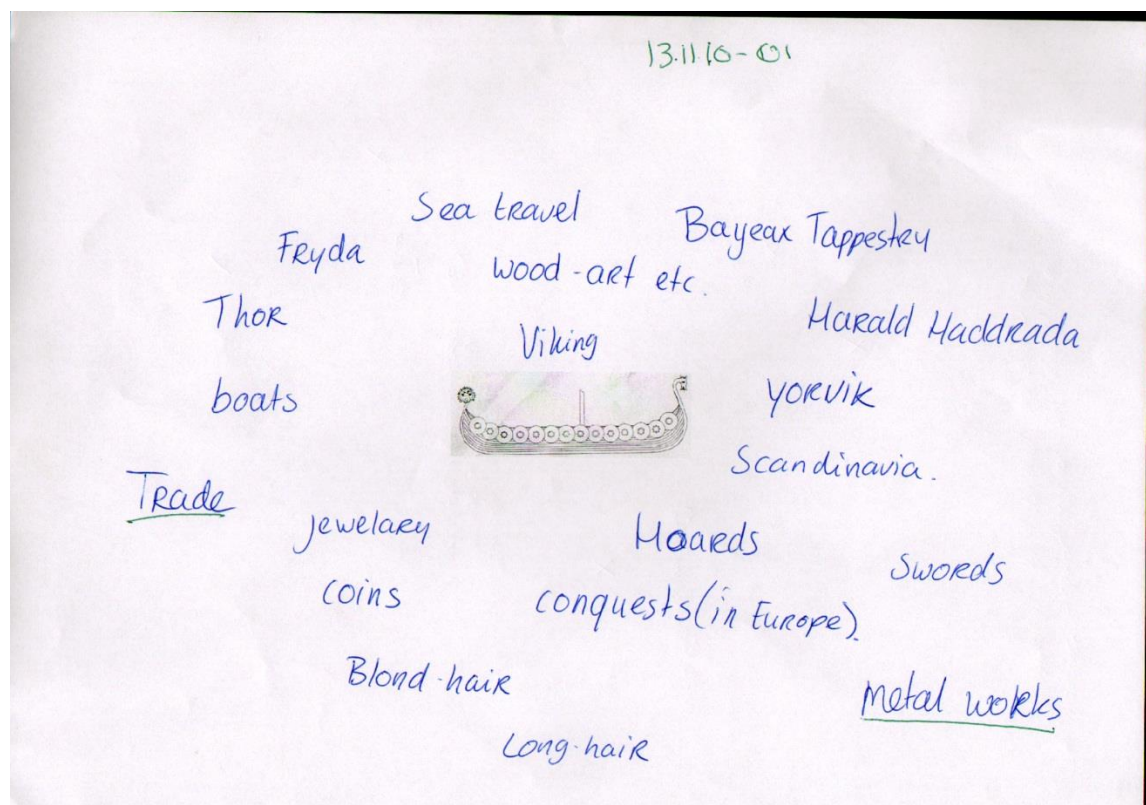 13.11.10-01
Sea travel
Bayeax Tappestry
Fryda
wood-art etc.
Thor
Harald Haddrada
Viking
boats
Yorvik
Scandinavia.
Trade
jewelary
Hoards
Swords
coins
conquests (in Europe).
Blond-hair
Metal works
Long-hair